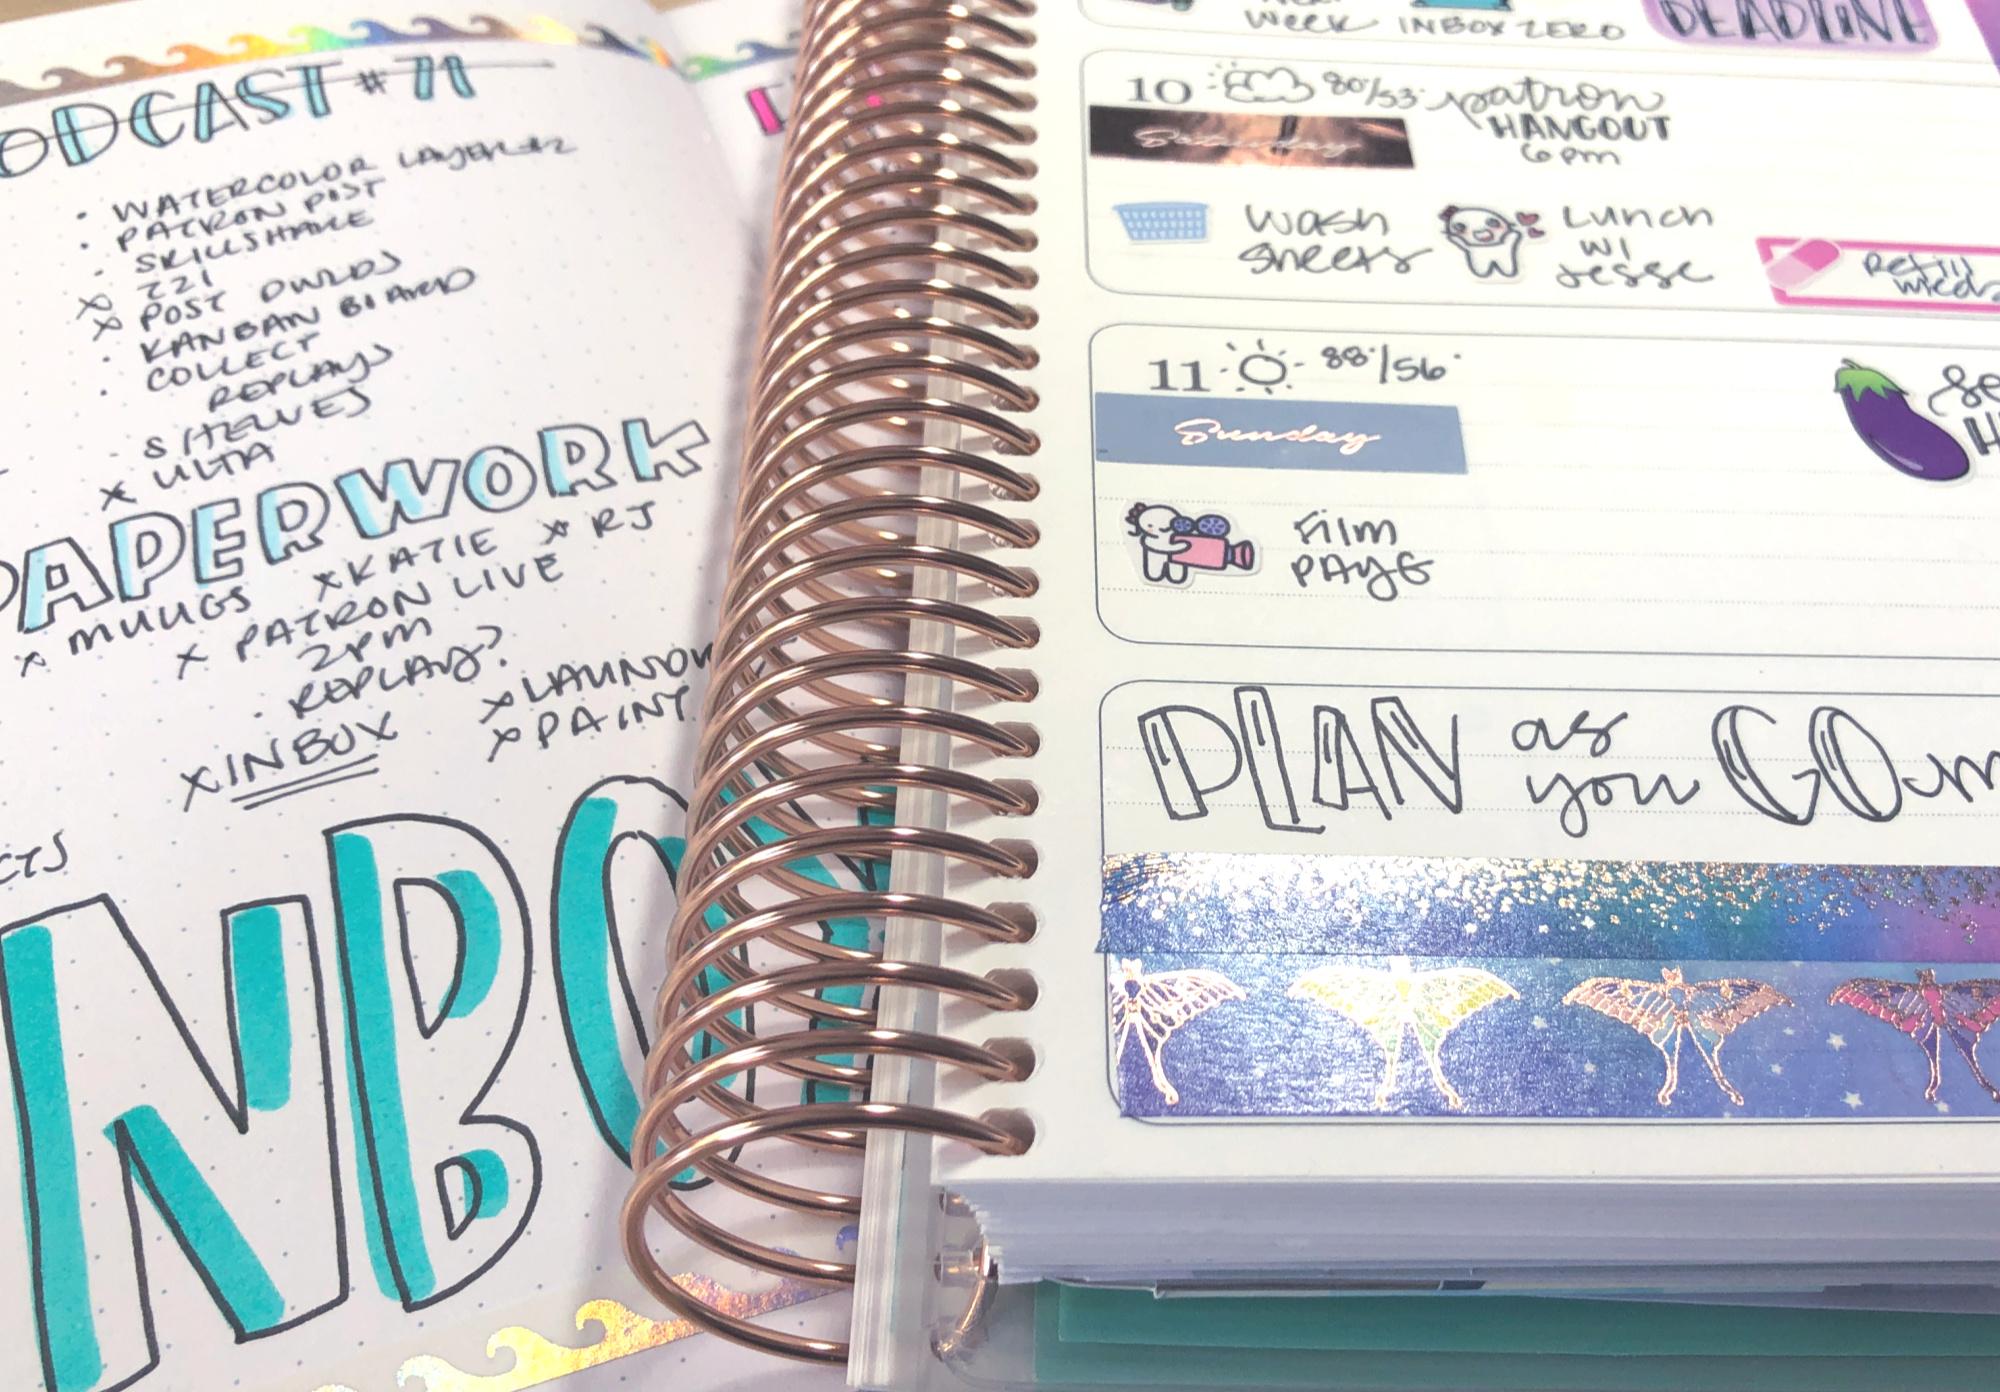 ODCAST #71
• WATERCOLOR LAYER #2
• PATRON POST
• SKILLSHARE
x 221
x POST OWLDS
• KANBAN BOARD
• COLLECT
REPLAYS
• SHELVES
x ULTA
PAPERWORK
x MUUGS x KATIE x RJ
x PATRON LIVE
2PM
• REPLAY?
x INBOX
x LAUNDR
x PAINT
CTS
NBOX
WEEK
INBOX ZERO
DEADLINE
10 80°/53° patron
HANGOUT
6pm
Saturday
Wash
Sheets
Lunch
w/
Jesse
Refill
meds
11 88°/56°
Sunday
Se
H
Film
PAYG
PLAN as you GO m